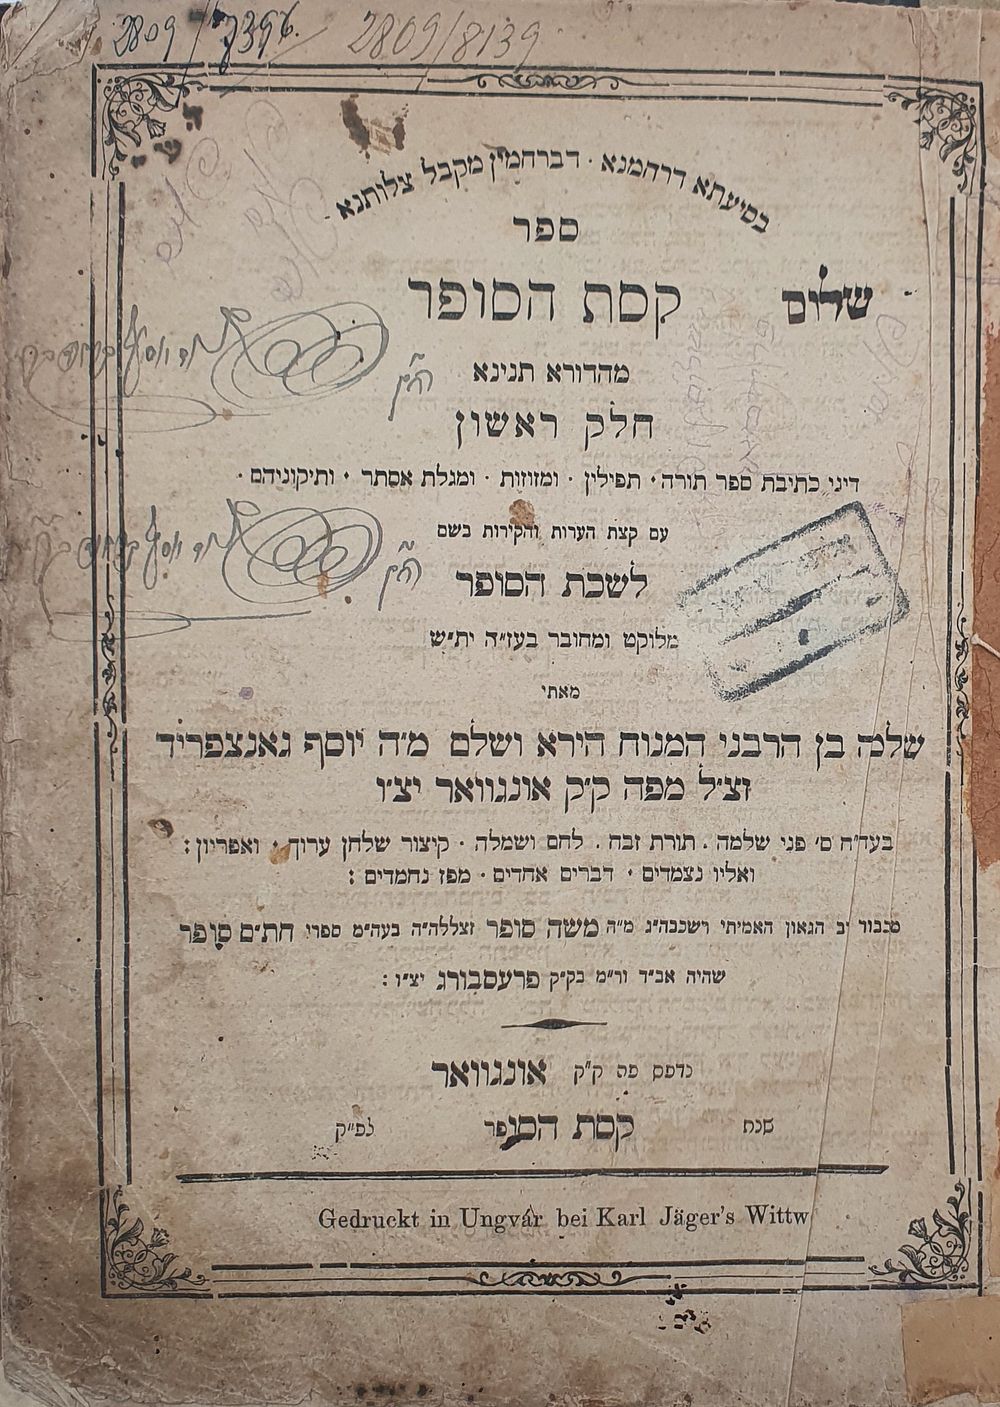 2809 / 7396. 2809/8139
בסיעתא דרחמנא · דברחמין מקבל צלותנא
ספר
שלום
קסת הסופר
מהדורא תנינא
חלק ראשון
דיני כתיבת ספר תורה · תפילין · ומזוזות · ומגלת אסתר · ותיקוניהם ·
עם קצת הערות וחקירות בשם
לשכת הסופר
מלוקט ומחובר בעז״ה ית״ש
מאתי
שלמה בן הרבני המנוח הירא ושלם מ״ה יוסף גאנצפריד
זצ״ל מפה ק״ק אונגוואר יצ״ו
בעד״ח ס׳ פני שלמה . תורת זבח . לחם ושמלה · קיצור שלחן ערוך · ואפריון :
ואליו נצמדים · דברים אחדים · מפז נחמדים :
מכבוד רב הגאון האמיתי רשכבה״ג מ״ה משה סופר זצללה״ה בעה״מ ספרי חת״ם סופר
שהיה אב״ד ור״מ בק״ק פרעסבורג יצ״ו :
נדפס פה ק״ק אונגוואר
שנת קסת הסופר לפ״ק
Gedruckt in Ungvár bei Karl Jäger's Wittw